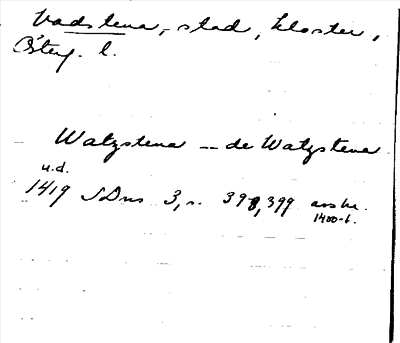 Vadstena, stad, kloster,
Österg. l.
Watzstena — de Watzstena
u.d.
1419 SDns 3, s. 398, 399 avskr.
1400-t.